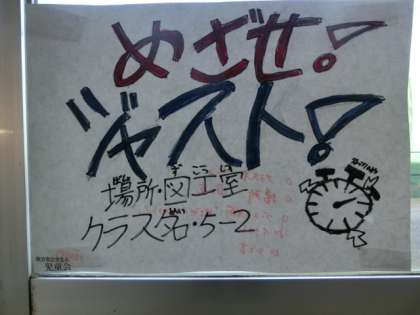 めざせ!
ジャスト!
場所・図工室
クラス名・5-2
児童会